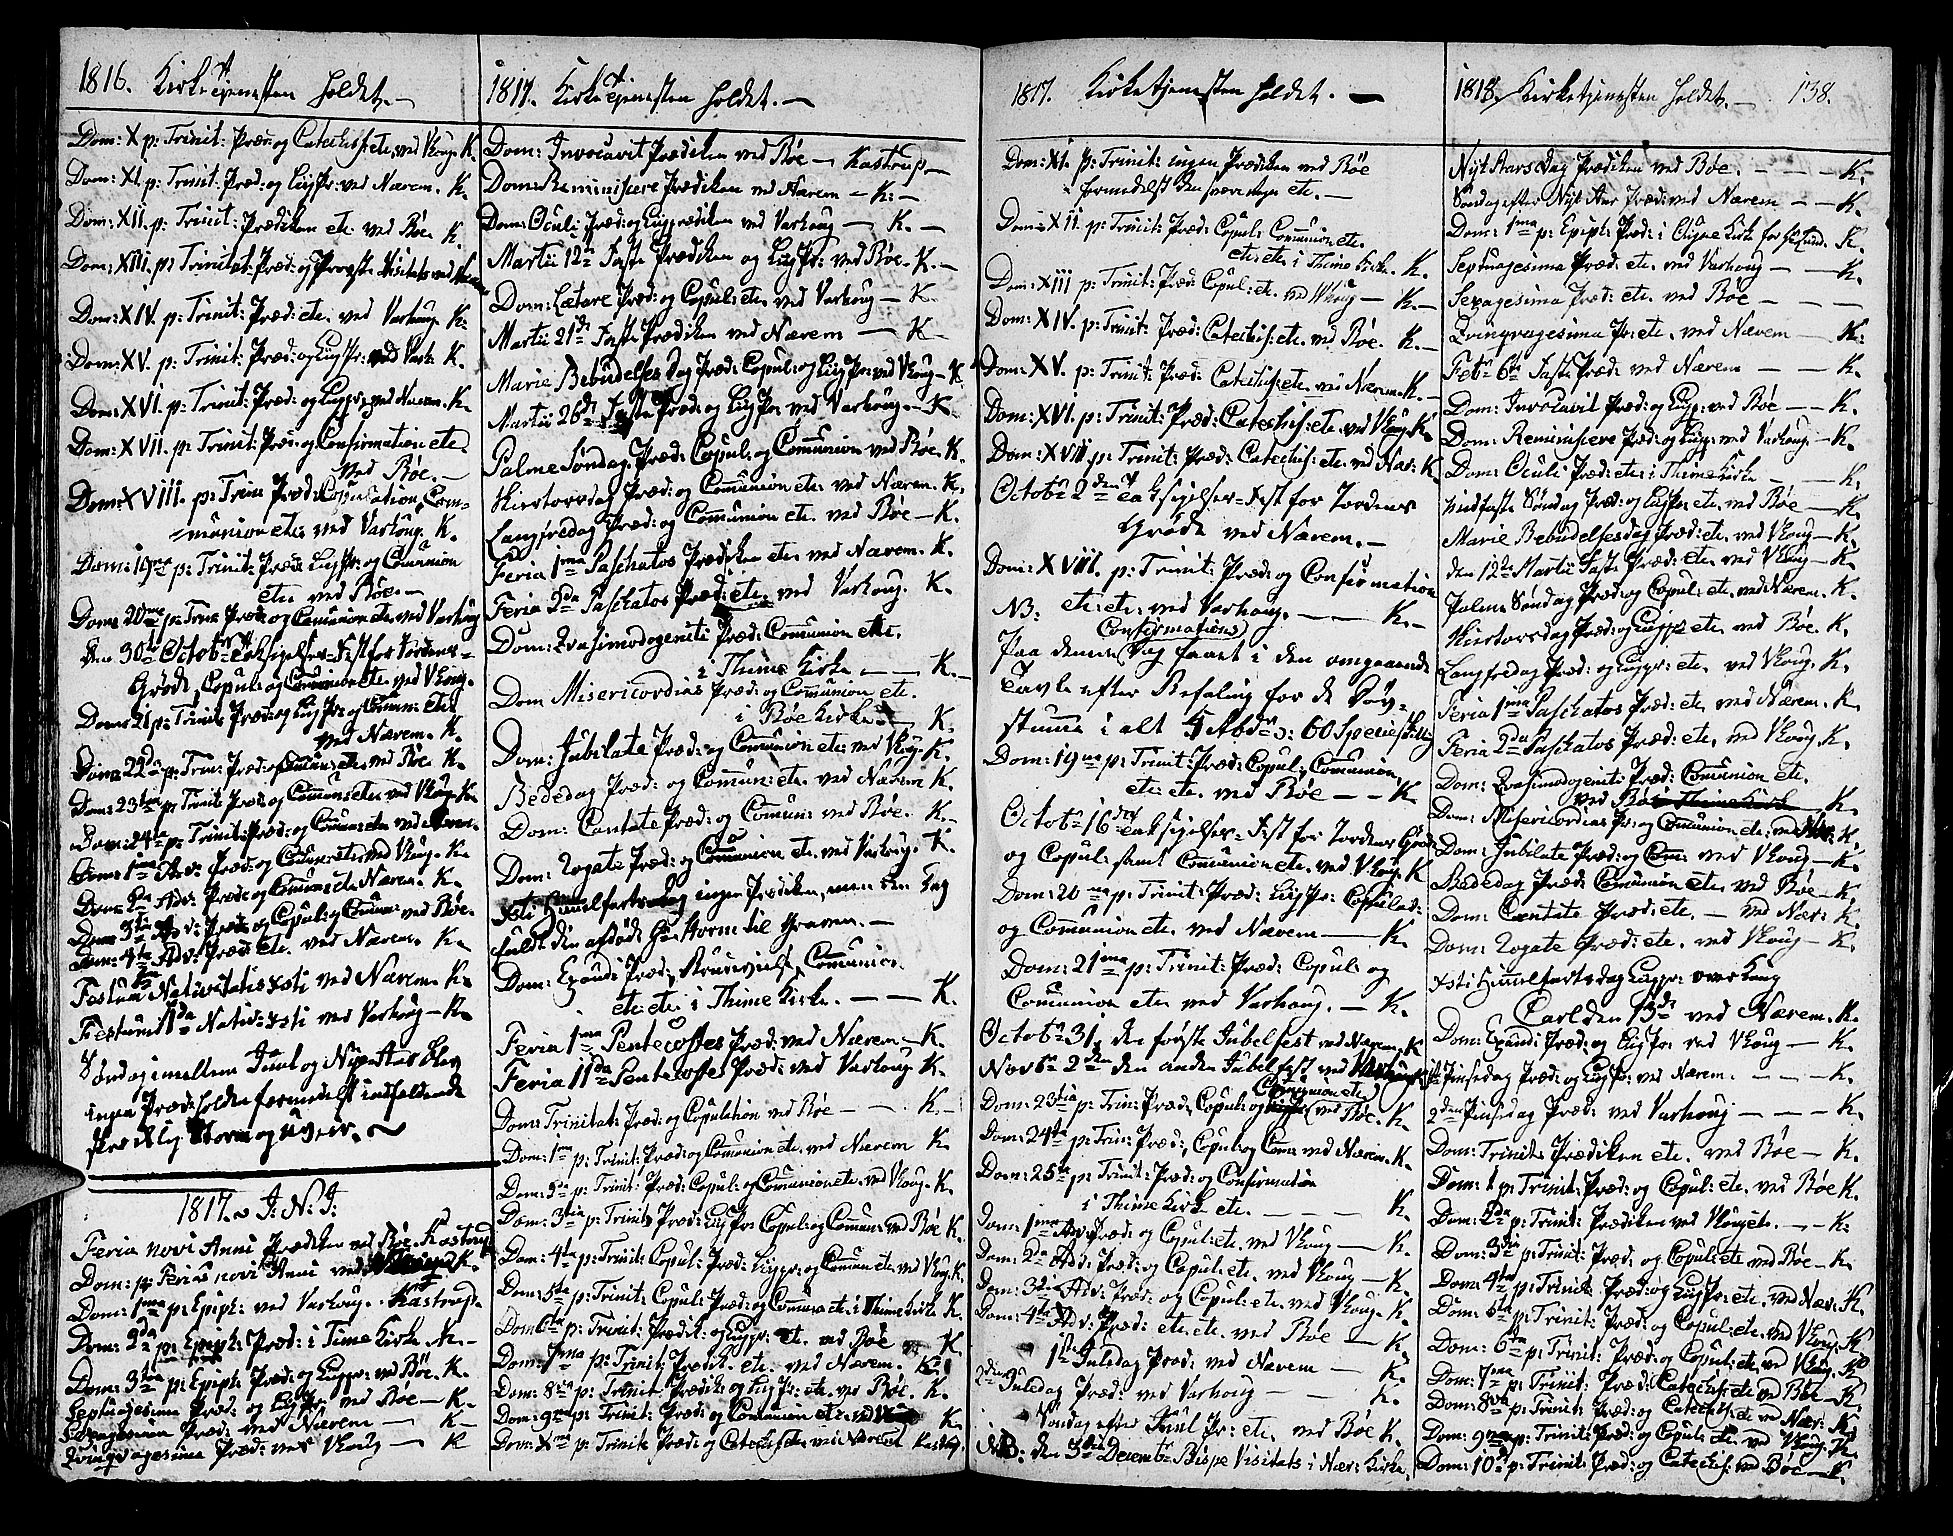 1816. Kirketjenesten holdet.
Dom: X p: Trinit: Præd: og Catechis: etc. ved Vhoug. K.
Dom: XI. p: Trinit: Præd: og Liigpr: ved Nærem. K.
Dom: XII. p: Trinit: Prædiken etc. ved Bøe. K.
Dom: XIII. p: Trinitat: Præd: og Provste Visitats ved
Dom: XIV. p: Trinit: Præd: etc. ved Varhoug. K.
Dom: XV. p: Trinit: Præd: og Liigpr: ved Varh. K.
Dom: XVI. p: Trinit: Præd: og Liigpr: ved Nærem. K.
Dom: XVII. p: Trinit: Præd: og Confirmation etc
ved Bøe.
Dom: XVIII. p: Trin: Præd: Copulation, Com=
=munion etc. ved Varhoug. K.
Dom: 19na p: Trinit: Præd: Liigpr: og Comunion
etc. ved Bøe.
Dom: 20ma p: Trin: Præd: og Comunion etc. ved Varhoug
den 30te Octobr Taksigelses-Fest for Jordens=
Grøde, Copul: og Comunion etc. ved Vhoug.
Dom: 21 p: Trinit: Præd: og Liigpr: og Comun: etc
ved Nærem. K.
Dom: 22da p: Trin: Præd: og Comun: etc. ved Bøe K.
Dom: 23tia p: Trinit: Præd: og Comun: etc. ved Vhoug. K.
Dom: 24ta p: Trinit: Præd: og Comun: etc ved Nærem.
Dom: 1ma Adv: Præd: og Comun: etc. ved Vhoug. K.
Dom: 2da Adv: Præd: og Comun: etc. Nærem. K.
Dom: 3tia Adv: Præd: og Copul: og Comun: ved Bøe.
Dom: 4ta Adv: Præd: etc. ved Nærem. K.
Festum Nativitatis Xsti ved Nærem. K.
Festum IIda Nativ: Xsti ved Varhoug. K.
Søndag imellem Juul og Nyt Aar blev
ingen Præd: holden formedelst indfaldende
skrækkelig Storm og Uveir.
1817. J: N: J:
Feria novi Anni Prædiken ved Bøe. Kastrup
Dom: p: Ferias novi Anni ved K.
Dom: 1ma p: Epiph: ved Varhoug. Kastrup.
Dom: 2da p: Epiph: Præd: i Time Kirke K.
Dom: 3tia p: Epiph: Præd: og Liigpr: ved Bøe. K.
Septuagesima Præd: og Liigpr: ved Bøe K.
Sexagesima Præd: ved Nærem K
Qvinqvagesima Præd: ved Vhoug K
1817. Kirketjenesten holdet.
Dom: Invocavit Prædiken ved Bøe Kastrup
Dom: Reminisere Prædiken ved Nærem K.
Dom: Oculi Præd: og Liigprædiken ved Varhoug K.
Martii 12te Faste Prædiken og Liigpr: ved Bøe. K.
Dom: Lætare Præd: og Copul: etc. ved Varhoug K.
Martii 21de Faste Prædiken ved Nærem K
Mariæ Bebudelses Dag Præd: Copul: og Liigpr: ved Vhoug K.
Martii 26de Faste Præd: og Liigpr: ved Varhoug. K
Palme Søndag. Præd: Copul: og Comunion ved Bøe. K.
Skiertorsdag Præd: og Comunion etc. ved Nærem. K.
Langfredag Præd: og Comunion etc. ved Bøe K.
Feria 1ma Paschatos Prædiken etc. ved Nærem. K.
Feria 2da Paschatos Præd: etc. ved Varhoug. K.
Dom: Qvasimodogeniti Præd: Comunion etc.
i Thime Kirke K.
Dom Misericordias Præd: og Comunion etc.
i Bøe Kirke K.
Dom: Jubilate Præd: og Comunion etc. ved Vhoug. K.
Bededag Præd: og Comun: etc. ved Nærem K.
Dom: Cantate Præd: og Comun: ved Bøe. K.
Dom: Rogate Præd: og Comunion etc. ved Varhoug. K.
Xsti Himelfartsdag ingen Prædiken, men den Dag
fuldt den afdøde til Graven.
Dom: Exaudi Præd: Bruuevielse, Comunion
etc: etc: i Thime Kirke. K.
Feria 1ma Pentecostes Præd: ved Nærem. K.
Feria IIda Pentecostes Præd: ved Varhoug K.
Dom: Trinitat: Præd: og Copulation ved Bøe K.
Dom: 1ma p: Trinit: Præd: og Comunion etc. ved Nærem K.
Dom: 2da p: Trinit: Præd: Copul: og Comunion etc. ved Vhoug. K.
Dom: 3tia p: Trinit: Præd: Liigpr: Copul: og Comun: ved Bøe K.
Dom: 4ta p: Trinit: Copul: Præd: Liigpr: og Comun etc. ved Vhoug. K.
Dom: 5ta p: Trinit: Copul: Præd: og Comun etc. i Thime Kirke K.
Dom 6ta p: Trinit: Prædik: og Liigpr: etc. ved Bøe K.
Dom: 7ma p: Trinit: Prædik. etc. ved Nærem. K.
Dom: 8va p: Trinit: Prædik: og Liigpr: etc. ved Bøe. K.
Dom: 9na p: Trinit: Præd: og Comunion etc. ved K.
Dom: Xma p: Trinit: Præd: og Catechis: etc. ved Nærem Kastrup.
1817. Kirketjenesten holdet.
Dom: XI. p: Trinit: ingen Prædiken ved Bøe
formedelst den etc.
Dom: XII. p: Trinit: Præd: Copul: Comunion etc.
etc. etc. i Thime Kirke. K.
Dom: XIII p: Trinit: Præd: Copul: etc. ved Vhoug K.
Dom: XIV. p: Trinit: Præd: Catechis: etc. ved Bøe. K.
Dom: XV. p: Trinit: Præd: Catechis: etc. ved Nærem. K.
Dom: XVI. p: Trinit: Præd: Catechis: etc. ved Vhoug. K.
Dom: XVII p: Trinit: Præd: Catechis: etc. ved Nær: K
Octobr 2den Taksigelses-Fest for Jordens
Grøde ved Nærem.
Dom: XVIII. p: Trinit: Præd: og Confirmation
NB. etc: etc: ved Varhoug. K.
Confirmations
Paa denne Dag faaet i den omgaaende
Tavle efter Befaling for de Døv=
stumme i alt 4 Rbdr o: 60 Speciesk:
Dom: 19na p: Trinit: Præd: Copul: Comunion
etc: etc. ved Bøe K
Octobr 16den Taksigelses-Fest for Jordens Grøde
og Copul: samt Comunion etc. ved Vhoug. K
Dom: 20ma p: Trinit: Præd: Liigpr: Copulat:
og Comunion etc. ved Nærem K.
Dom: 21ma p: Trinit: Præd: Copul: og
Comunion etc. ved Varhoug. K.
Octobr 31. den første Jubelfest ved Nærem. K
Novbr 2den den anden Jubelfest ved Varhoug
Comunion etc.
Dom: 23tia p: Trin: Præd: Copul: og ved Bøe. K.
Dom: 24ta p: Trin: Præd: Copul: og Comu: ved Nærem. K.
Dom: 25ta p: Trinit: Præd: og Confirmation
i Thime Kirke etc. K.
Dom: 1ma Adv Præd: og Copul: etc. ved Vhoug K.
Dom: 2da Adv: Præd: og Copul: etc. ved Vhoug K.
Dom: 3tia Adv: Præd: og Copul: etc. ved Vhoug. K.
Dom: 4ta Adv: Præd: etc. etc. ved Bøe K.
1ste Juledag Præd: ved Nærem K.
2den Juledag Præd: ved Varhoug K.
Søndag efter Juul Pr: etc. ved Bøe K.
NB: den 3die Decembr Bispe Visitats i Nær: Kirke.
1818. Kirketjenesten holdet. 138.
Nyt Aars Dag Prædiken ved Bøe. K.
Søndag efter Nyt Aar Præd: ved Nærem K.
Dom: 1ma p: Epiph: Præd: i Kirke for K.
Septuagesima Præd: etc. ved Varhoug K.
Sexagesima Præd: etc. ved Bøe
Qvinqvagesima Pr: etc. ved Nærem K.
Febr 6te Faste Præd: ved Nærem K.
Dom: Invocavit Præd: og Liigp: ved Bøe K.
Dom: Reminisere Præd: og Liigp: ved Varhoug. K.
Dom: Oculi Præd: etc: i Thime Kirke K.
Midfaste Søndag Præd: og Liigpr. etc. ved Bøe K.
Mariæ Bebudelsesdag Præd: etc. ved Vhoug K.
den 12te Martii Faste Præd: etc. ved Vhoug K.
Palme Søndag Præd: og Copul: etc. ved Nærem. K.
Skiertorsdag Præd: og Liigpr etc. ved Bøe. K.
Langfredag Præd: og Liigpr: etc. ved Vhoug. K.
Feria 1ma Paschatos Præd: etc. ved Nærem. K.
Feria 2da Paschatos Præd: etc. ved Vhoug. K.
Dom: Qvasimodogeniti Præd: Comunion etc.
ved Bøe Thime Kirke K.
Dom: Misericordias Pr: og Comunion etc. ved Nær: K.
Dom: Jubilate Præd: og Com: ved Vhoug K.
Bededag Præd: Comunion etc. ved Bøe K.
Dom: Cantate Præd: etc. ved Nær: K.
Dom: Rogate Præd: etc. ved Vhoug K.
Xsti Himelfartsdag Liigpr: over
Carl den 13de ved Nærem. K.
Dom: Exaudi Præd: og Liigpr: ved Vhoug K.
1ste Pinsedag Præd: og Liigpr: ved Nærem. K.
2den Pinsedag Præd: ved Varhoug K.
Dom: Trinits Prædiken etc. ved Bøe K.
Dom: 1 p: Trinit: Præd: og Copul: etc. ved Bøe K.
Dom: 2da p: Trinit: Prædiken ved Vhoug etc. K.
Dom: 3tia p: Trinit: Præd: og Copul: etc ved Bøe K.
Dom: 4ta p: Trinit: Præd: og Liigpr: etc. ved Nær: K.
Dom: 5ta p: Trinit: Præd: og Copul: etc. ved Vhoug. K
Dom: 6ta p: Trinit: Præd: og Copul: etc. ved Vhoug. K
Dom: 7ma p: Trinit: Præd: Catechis: etc ved Bøe K.
Dom: 8va p: Trinit: Præd: og Catechis: etc ved Nær: K.
Dom: 9na p: Trinit: Præd: og Copul: etc. ved Vhoug. K.
Dom: 10d p: Trinit: Præd: og Catechis: ved Bøe K.